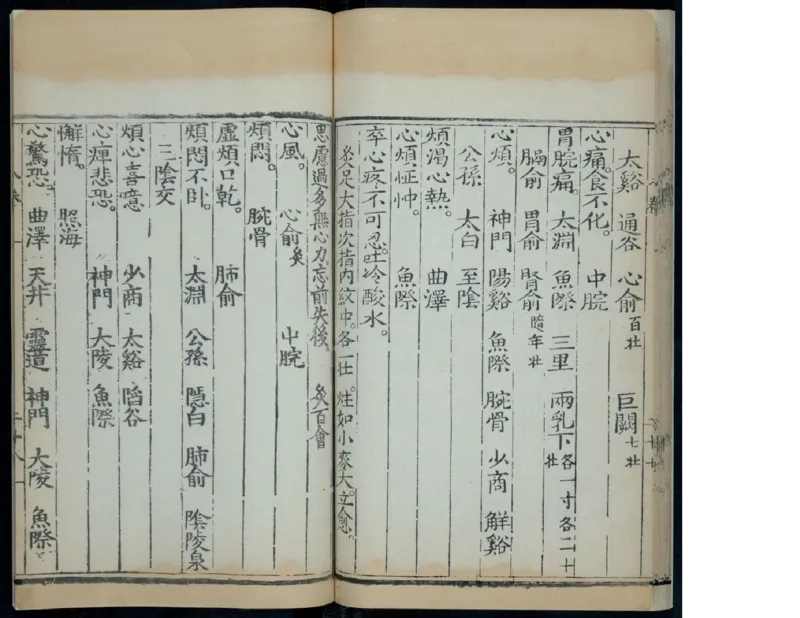 太谿 通谷 心俞百壯 巨闕七壯
心痛。食不化。 中脘
胃脘痛。太淵 魚際 三里 兩乳下各一寸各二十壯
膈俞 胃俞 腎俞隨年壯
心煩。 神門 陽谿 魚際 腕骨 少商 解谿
公孫 太白 至陰
煩渴心熱。 曲澤
心煩怔忡。 魚際
卒心疼不可忍。吐冷酸水。
灸足大指次指內紋中。各一壯。炷如小麥大。立愈。
思慮過多無心力。忘前失後。 灸百會
心風。 心俞灸 中脘
煩悶。 腕骨
虛煩口乾。 肺俞
煩悶不卧。 太淵 公孫 隱白 肺俞 陰陵泉
三陰交
煩心喜噫 少商 太谿 陷谷
心痺悲恐。 神門 大陵 魚際
懈惰。 照海
心驚恐。 曲澤 天井 靈道 神門 大陵 魚際